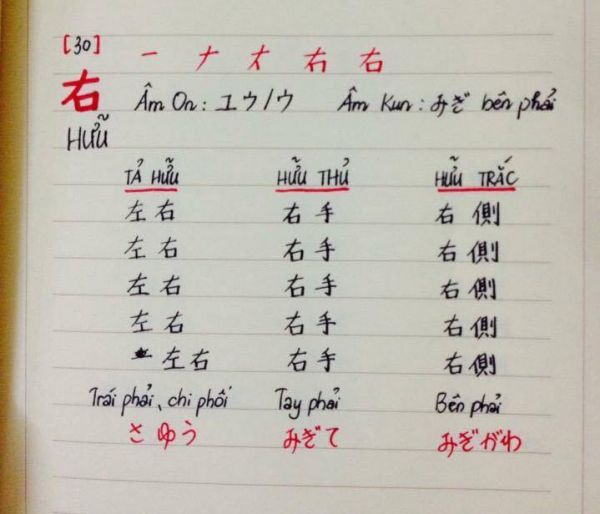 [30] 一 ナ オ 右 右
右 Âm On : ユウ/ウ Âm Kun : みぎ bên phải
HỮU
TẢ HỮU HỮU THỦ HỮU TRẮC
左右 右手 右側
左右 右手 右側
左右 右手 右側
左右 右手 右側
左右 右手 右側
Trái phải, chi phối Tay phải Bên phải
さゆう みぎて みぎがわ